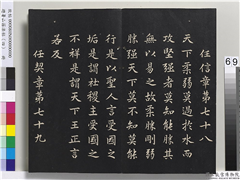 任信章第七十八
天下柔弱莫過於水而
攻堅強者莫知能勝其
無以易之故柔勝剛弱
勝強天下莫不知莫能
行是以聖人言受國之
垢是謂社稷主受國之
不祥是謂天下王正言
若反
任契章第七十九
69